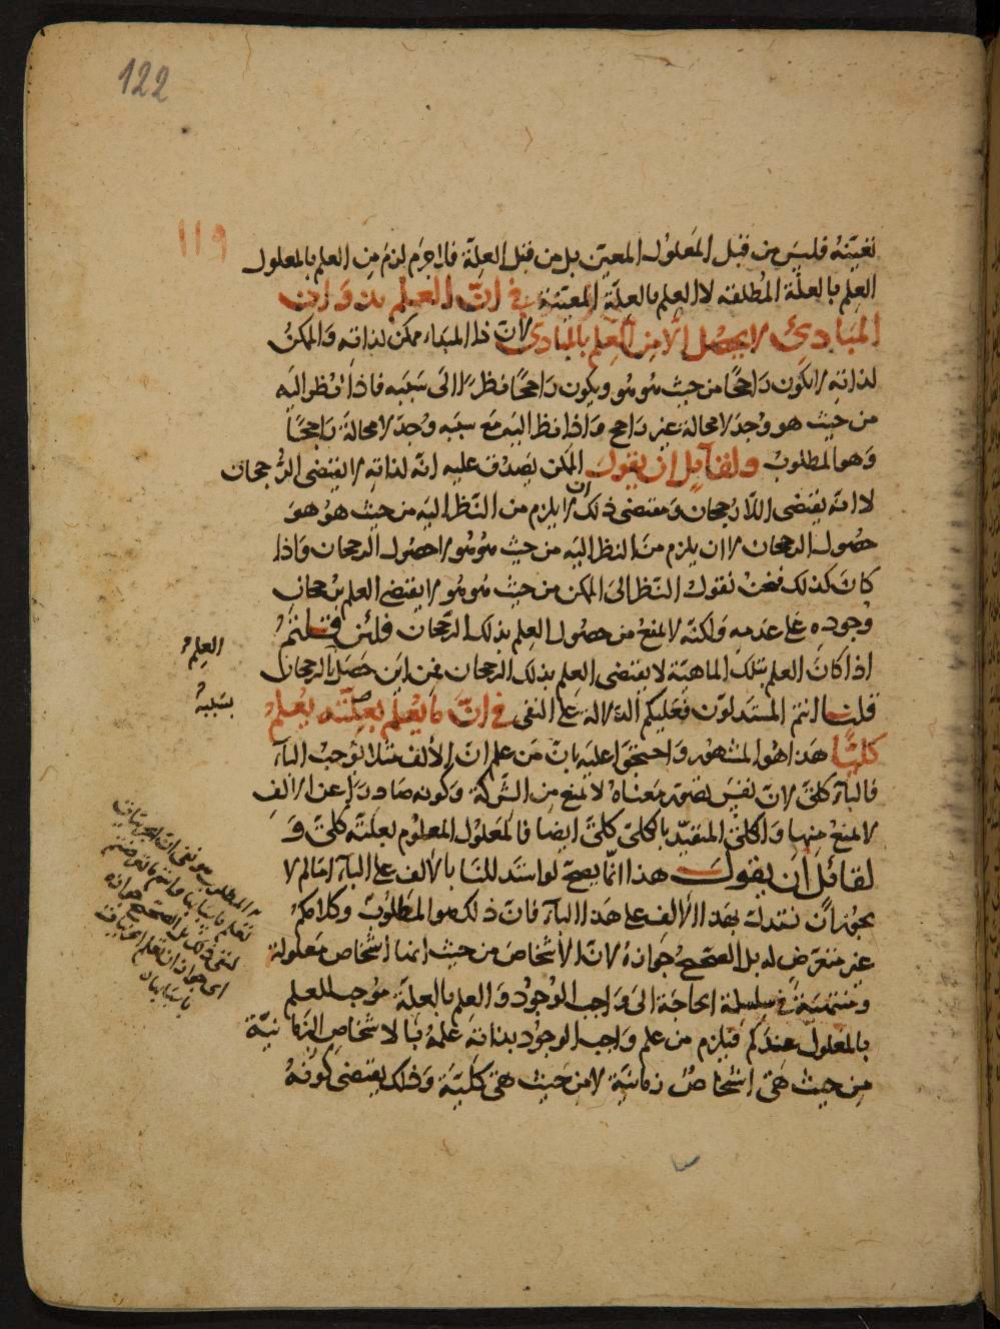 122
١١٩
تعيّنه فليس من قبل المعلول المعين بل من قبل العلّة فلاجرم لزم من العلم بالمعلول
العلم بالعلّة المطلقة لا العلم بالعلّة المعيّنة في انّ العلم بذوات
المبادئ لا يحصل الا من العلم بالمبادئ لان ذا المبداء ممكن لذاته والممكن
لذاته لا يكون راجحًا من حيث هو هو ويكون راجحًا نظرًا الى سببه فاذا نظر اليه
من حيث هو وجد لا محالة غير راجح واذا نظر اليه مع سببه وجد لا محالة راجحًا
وهو المطلوب ولقائل ان يقول الممكن يصدق عليه انه لذاته لا يقتضى الرجحان
لا انه يقتضى اللارجحان ومقتضى ذلك ان لا يلزم من النظر اليه من حيث هو هو
حصول الرجحان لا ان يلزم من النظر اليه من حيث هو هو لا حصول الرجحان واذا
كان كذلك فنحن نقول النظر الى الممكن من حيث هو هو لا يقتضى العلم برجحان
وجوده على عدمه ولكنه لا يمنع من حصول العلم بذلك الرجحان فلئن قلتم
اذا كان العلم بتلك الماهية لا يقتضى العلم بذلك الرجحان فمن اين حصل بالرجحان
العلم
قلنا انتم المستدلون فعليكم الدلالة على النفى في انّ ما يعلم بعلّته يعلم
بسببه
كليًّا هذا هو المشهور واحتجّوا عليه بان من علم ان الالف مثلا توجب البآ
فالبآ كلىّ لان نفس تصور معناه لا يمنع من الشركة وكونه صادرا عن الالف
لا يمنع منها والكلىّ المقيّد بالكلىّ كلىّ ايضا فالمعلول المعلوم بعلته كلىّ و
لقائل ان يقول هذا انما يصح لو استدللنا بالالف على البآ اما لم لا
يجوز ان نستدل بهذا الالف على هذا البآ فان ذلك هو المطلوب وكلامكم
غير متعرّض له بل الصحيح جوازه لان الاشخاص من حيث انها اشخاص معلولة
ومنتهية في سلسلة الحاجة الى واجب الوجود والعلم بالعلة موجب للعلم
بالمعلول عندكم فيلزم من علم واجب الوجود بذاته علمه بالاشخاص الزمانية
من حيث هى اشخاص زمانية لا من حيث هى كلية وذلك يقتضى كونه
المطلوب هو نفى ان الجزئيات
تعلم باسبابها وانتم ما تعرضتم
لنفى ذلك بل الصحيح جوازه
اى جواز ان تعلم الجزئيات
باسبابها